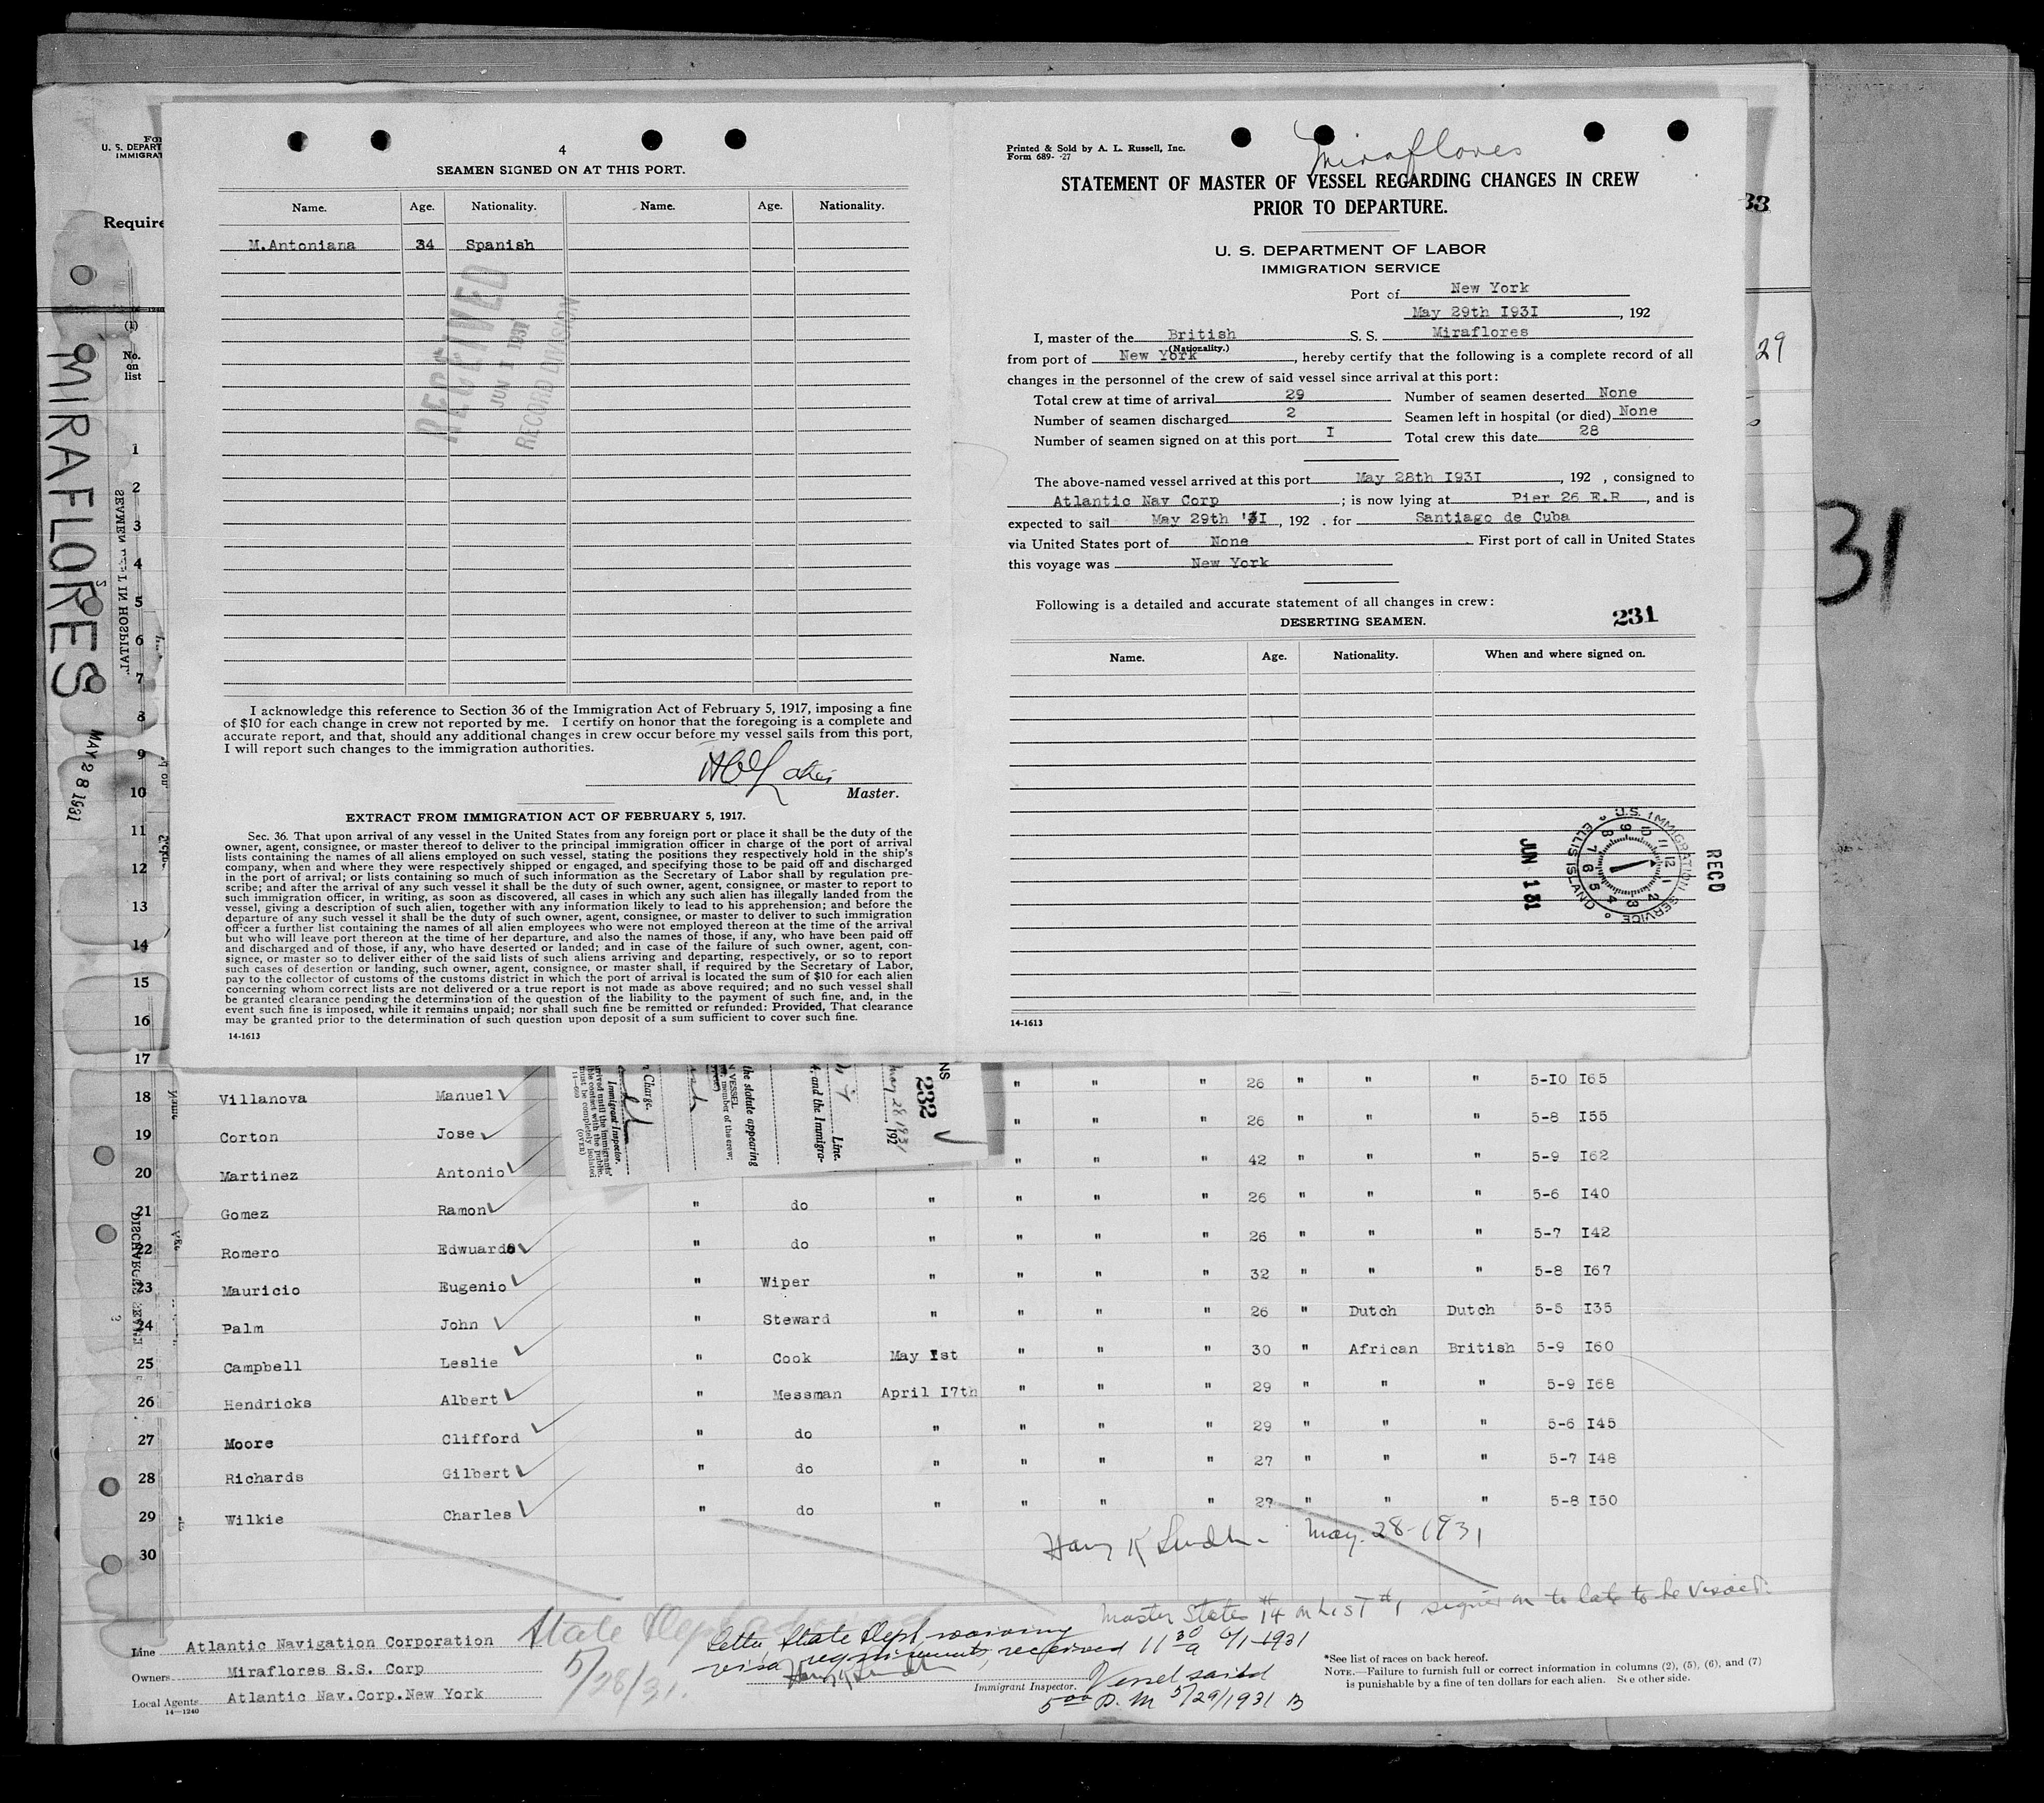 4
SEAMEN SIGNED ON AT THIS PORT.
Name. Age. Nationality. Name. Age. Nationality.
M.Antoniana 34 Spanish
RECEIVED
JUN 1 1931
RECORD DIVISION
I acknowledge this reference to Section 36 of the Immigration Act of February 5, 1917, imposing a fine
of $10 for each change in crew not reported by me. I certify on honor that the foregoing is a complete and
accurate report, and that, should any additional changes in crew occur before my vessel sails from this port,
I will report such changes to the immigration authorities.
Master.
EXTRACT FROM IMMIGRATION ACT OF FEBRUARY 5, 1917.
Sec. 36. That upon arrival of any vessel in the United States from any foreign port or place it shall be the duty of the
owner, agent, consignee, or master thereof to deliver to the principal immigration officer in charge of the port of arrival
lists containing the names of all aliens employed on such vessel, stating the positions they respectively hold in the ship's
company, when and where they were respectively shipped or engaged, and specifying those to be paid off and discharged
in the port of arrival; or lists containing so much of such information as the Secretary of Labor shall by regulation pre-
scribe; and after the arrival of any such vessel it shall be the duty of such owner, agent, consignee, or master to report to
such immigration officer, in writing, as soon as discovered, all cases in which any such alien has illegally landed from the
vessel, giving a description of such alien, together with any information likely to lead to his apprehension; and before the
departure of any such vessel it shall be the duty of such owner, agent, consignee, or master to deliver to such immigration
officer a further list containing the names of all alien employees who were not employed thereon at the time of the arrival
but who will leave port thereon at the time of her departure, and also the names of those, if any, who have been paid off
and discharged and of those, if any, who have deserted or landed; and in case of the failure of such owner, agent, con-
signee, or master so to deliver either of the said lists of such aliens arriving and departing, respectively, or so to report
such cases of desertion or landing, such owner, agent, consignee, or master shall, if required by the Secretary of Labor,
pay to the collector of customs of the customs district in which the port of arrival is located the sum of $10 for each alien
concerning whom correct lists are not delivered or a true report is not made as above required; and no such vessel shall
be granted clearance pending the determination of the question of the liability to the payment of such fine, and, in the
event such fine is imposed, while it remains unpaid; nor shall such fine be remitted or refunded: Provided, That clearance
may be granted prior to the determination of such question upon deposit of a sum sufficient to cover such fine.
14-1613
Printed & Sold by A. L. Russell, Inc.
Form 689- -27
Miraflores
STATEMENT OF MASTER OF VESSEL REGARDING CHANGES IN CREW
PRIOR TO DEPARTURE.
U. S. DEPARTMENT OF LABOR
IMMIGRATION SERVICE
Port of New York
May 29th I93I, 192
I, master of the British S. S. Miraflores
(Nationality.)
from port of New York, hereby certify that the following is a complete record of all
changes in the personnel of the crew of said vessel since arrival at this port:
Total crew at time of arrival 29 Number of seamen deserted None
Number of seamen discharged 2 Seamen left in hospital (or died) None
Number of seamen signed on at this port I Total crew this date 28
The above-named vessel arrived at this port May 28th I93I, 192 , consigned to
Atlantic Nav Corp; is now lying at Pier 26 E.R, and is
expected to sail May 29th '3I, 192 . for Santiago de Cuba
via United States port of None First port of call in United States
this voyage was New York
Following is a detailed and accurate statement of all changes in crew:
231
DESERTING SEAMEN.
Name. Age. Nationality. When and where signed on.
RECD
U.S. IMMIGRATION SERVICE
ELLIS ISLAND
JUN 1 31
14-1613
MIRAFLORES
MAY 28 1931
31
33
29
U. S. DEPART
IMMIGRAT
Require
(1)
No.
on
list
1
2
3
4
5
6
7
8
9
10
11
12
13
14
15
16
17
SEAMEN LEFT IN HOSPITAL
232
May 28 1931
192
Line.
4, and the Immigra-
the statute appearing
VESSEL
member of the crew;
Charge.
Immigrant Inspector.
(OVER)
" " " 26 " " " 5-I0 I65
18 Villanova Manuel " " " 26 " " " 5-8 I55
19 Corton Jose " " " 42 " " " 5-9 I62
20 Martinez Antonio " " " " 26 " " " 5-6 I40
21 Gomez Ramon " do " " " " 26 " " " 5-7 I42
22 Romero Edwuardo " do " " " " 32 " " " 5-8 I67
23 Mauricio Eugenio " Wiper " " " " 26 " Dutch Dutch 5-5 I35
24 Palm John " Steward " " " " 30 " African British 5-9 I60
25 Campbell Leslie " Cook May Ist " " " 29 " " " 5-9 I68
26 Hendricks Albert " Messman April I7th " " " 29 " " " 5-6 I45
27 Moore Clifford " do " " " " 27 " " " 5-7 I48
28 Richards Gilbert " do " " " " 27 " " " 5-8 I50
29 Wilkie Charles " do
30
May. 28-1931
Master States #14 on List #1 signed on to late to be Visaed.
State Dep
5/28/31.
Letter State Dept waiving
visa requirements, received 11 30 a 6/1-1931
Vessel saild
5 00 P. M 5/29/1931 B
Immigrant Inspector.
Line Atlantic Navigation Corporation
Owners Miraflores S.S. Corp
Local Agents Atlantic Nav.Corp.New York
14-1240
*See list of races on back hereof.
NOTE.—Failure to furnish full or correct information in columns (2), (5), (6), and (7)
is punishable by a fine of ten dollars for each alien. See other side.